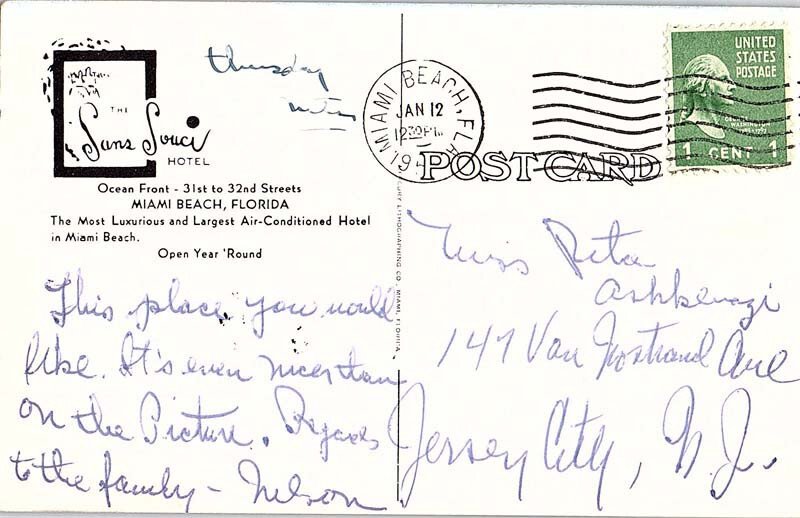 thursday
THE
Sans Souci
HOTEL
Ocean Front - 31st to 32nd Streets
MIAMI BEACH, FLORIDA
The Most Luxurious and Largest Air-Conditioned Hotel
in Miami Beach.
Open Year 'Round
This place you would
like. It's even nicer than
on the Picture. Regards
to the family - Nelson
MIAMI BEACH, FLA.
JAN 12
1230 PM
POST CARD
UNITED
STATES
POSTAGE
GEORGE
WASHINGTON
1 CENT 1
LITHOGRAPHING CO., MIAMI, FLORIDA
Miss Rita
Ashkenazi
147 Van Nostrand Ave
Jersey City, N.J.